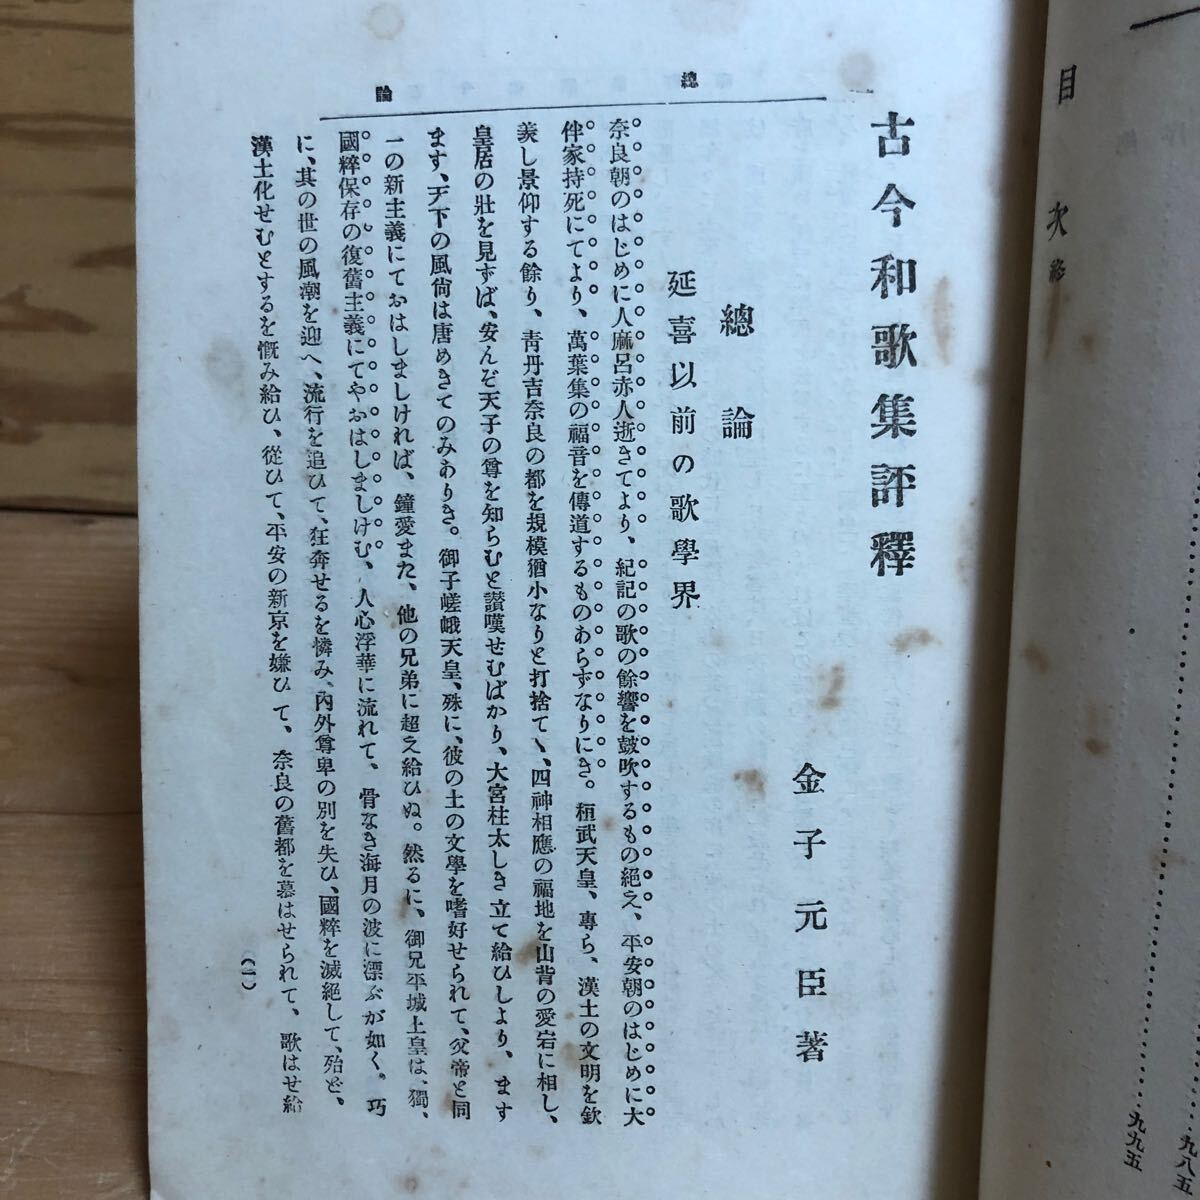 目次終
九八五
九九五
古今和歌集評釋
金子元臣著
總論
總論
延喜以前の歌學界
奈良朝のはじめに人麻呂赤人逝きてより、紀記の歌の餘響を鼓吹するもの絶え、平安朝のはじめに大
伴家持死にてより、萬葉集の福音を傳道するものあらずなりにき。桓武天皇、專ら、漢土の文明を欽
羨し景仰する餘り、靑丹吉奈良の都を規模猶小なりと打捨て丶、四神相應の福地を山背の愛宕に相し、
皇居の壯を見ずば、安んぞ天子の尊を知らむと讃嘆せむばかり、大宮柱太しき立て給ひしより、ます
ます、天下の風尙は唐めきてのみありき。御子嵯峨天皇、殊に、彼の土の文學を嗜好せられて、父帝と同
一の新主義にておはしましければ、鐘愛また、他の兄弟に超え給ひぬ。然るに、御兄平城上皇は、獨、
國粹保存の復舊主義にてやおはしましけむ、人心浮華に流れて、骨なき海月の波に漂ぶが如く。巧
に、其の世の風潮を迎へ、流行を追ひて、狂奔せるを憐み、內外尊卑の別を失ひ、國粹を滅絕して、殆ど、
漢土化せむとするを慨み給ひ、從ひて、平安の新京を嫌ひて、奈良の舊都を慕はせられて、歌はせ給
(一)